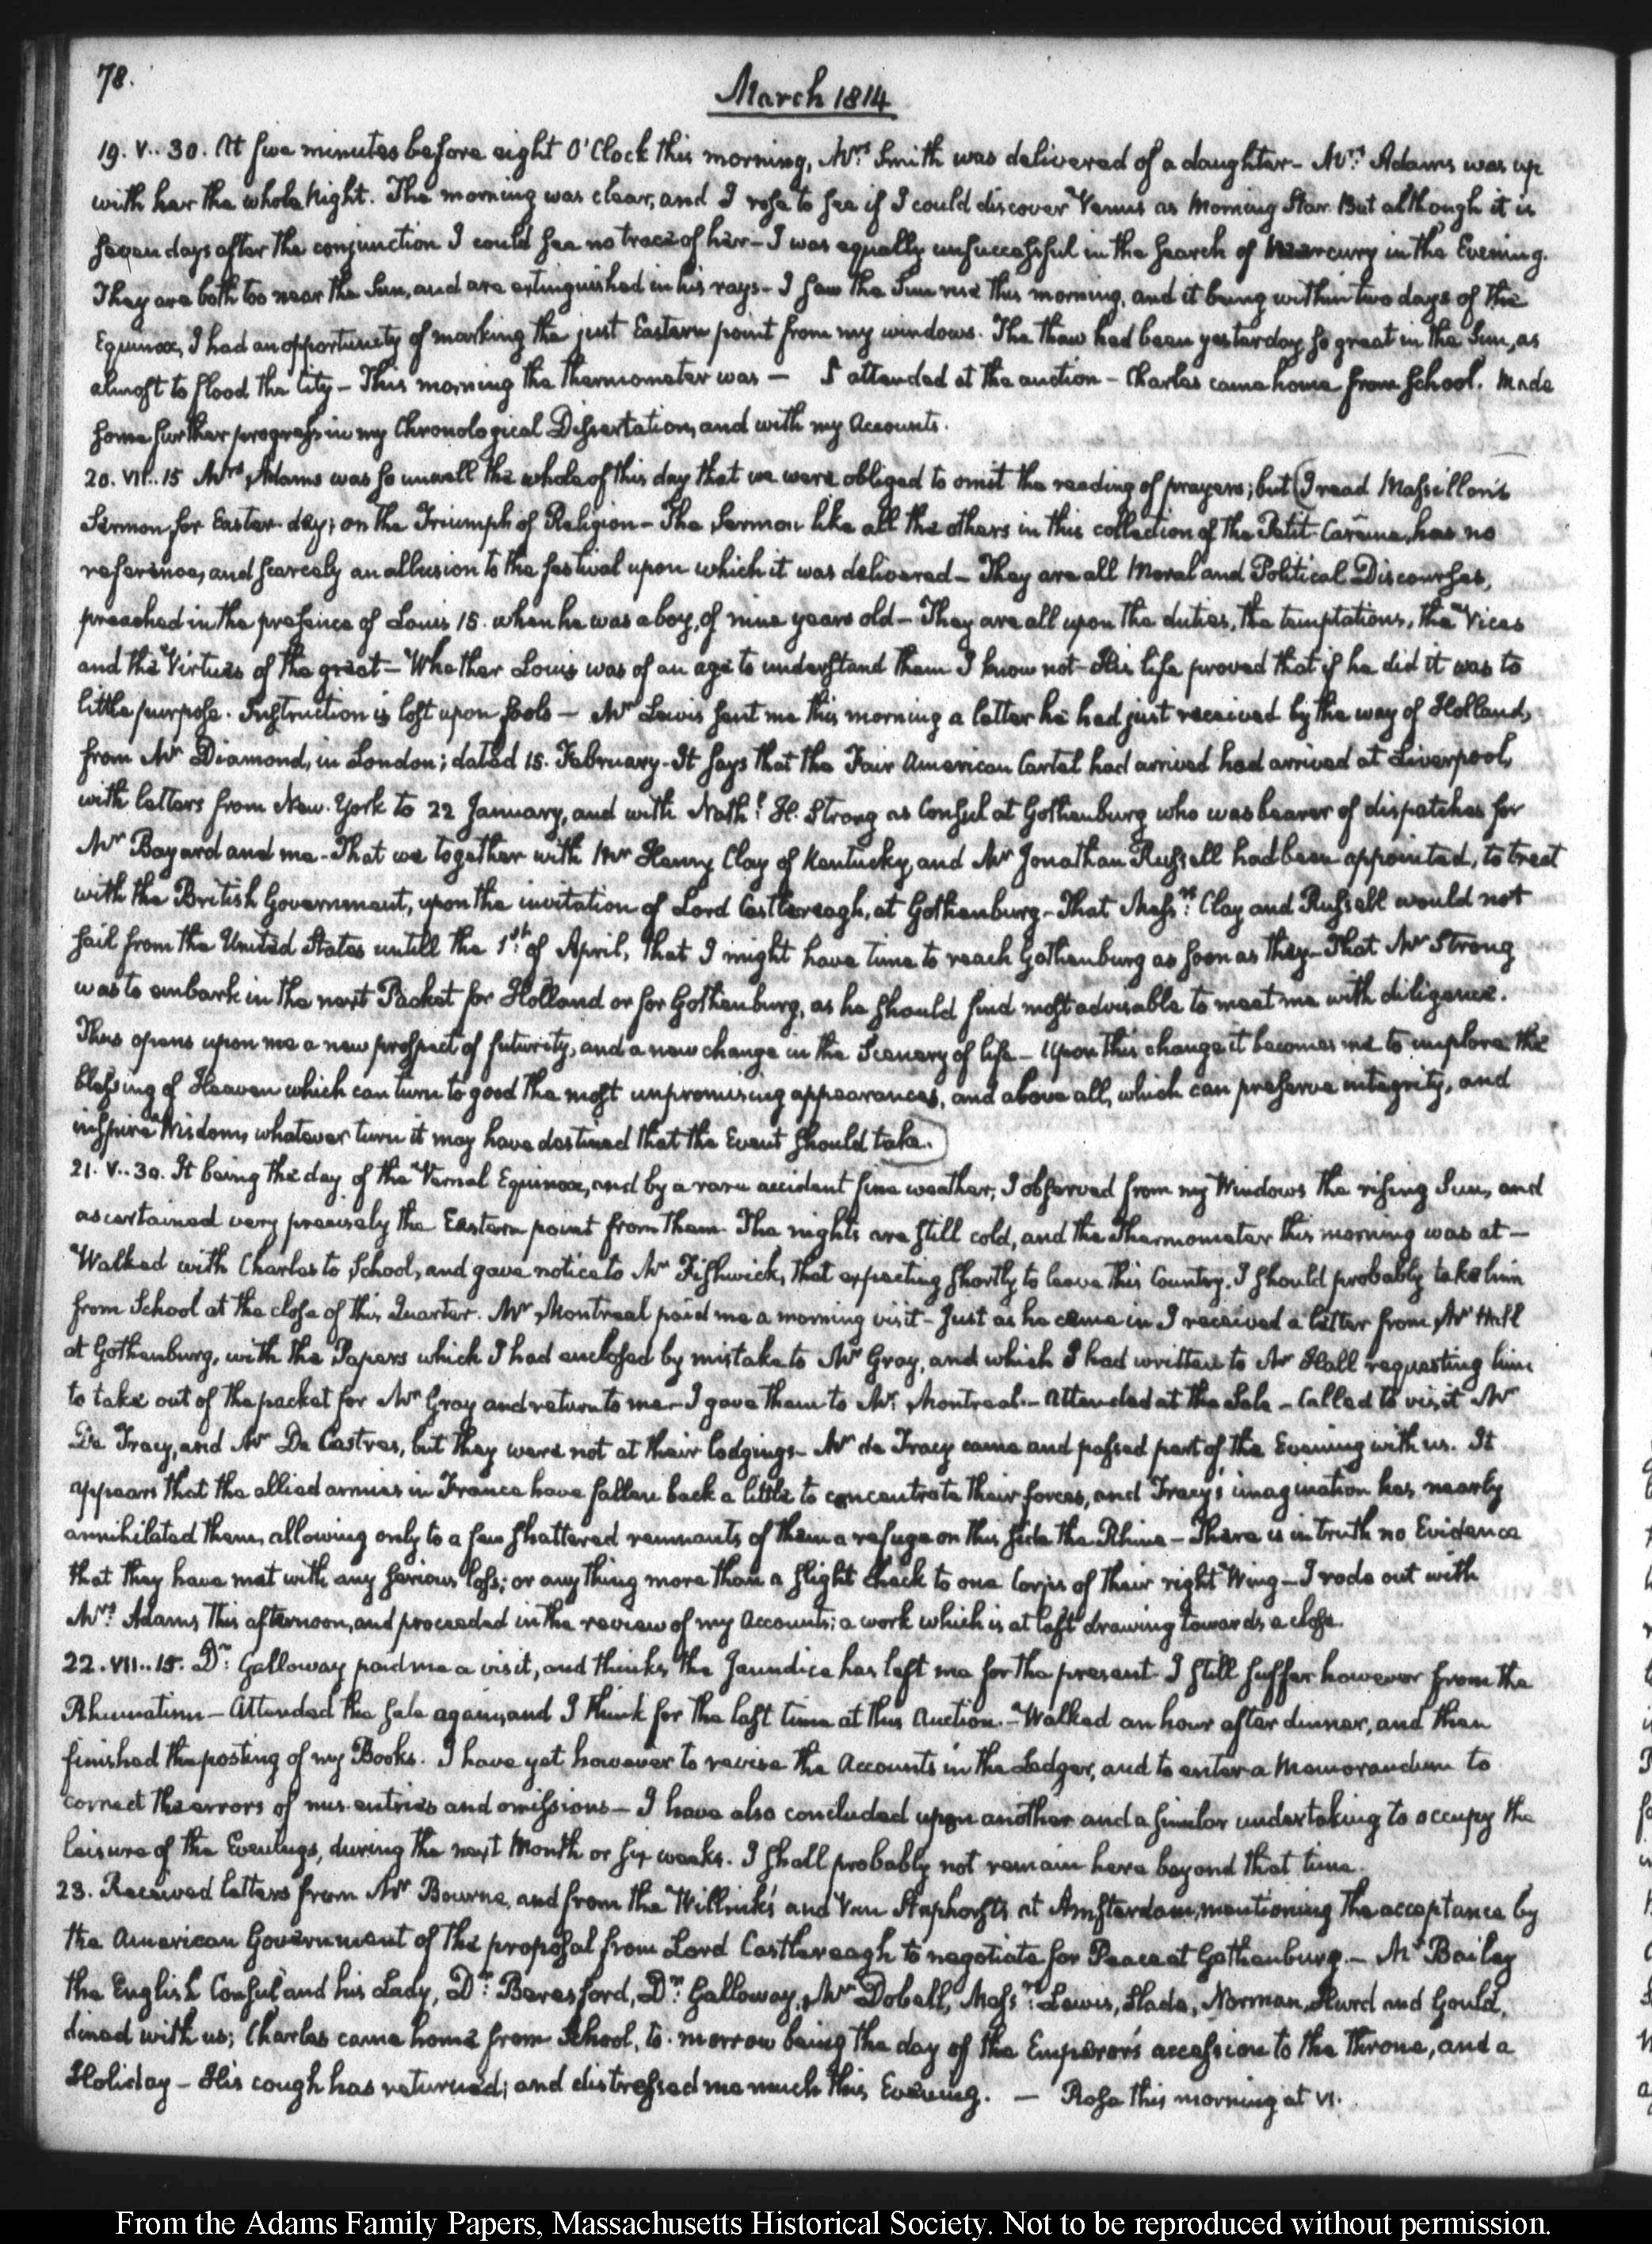 78.
March 1814
19. V..30. At five minutes before eight O'Clock this morning, Mrs. Smith was delivered of a daughter - Mrs. Adams was up
with her the whole Night. The morning was clear, and I rose to see if I could discover Venus as Morning Star. But although it is
seven days after the conjunction I could see no trace of her - I was equally unsuccessful in the search of Mercury in the Evening.
They are both too near the Sun, and are extinguished in his rays - I saw the Sun rise this morning, and it being within two days of the
Equinox, I had an opportunity of marking the just Eastern point from my windows. The thaw had been yesterday so great in the Sun, as
almost to flood the City - This morning the thermometer was — I attended at the auction - Charles came home from School. Made
some further progress in my Chronological Dissertation, and with my Accounts.
20. VII..15 Mrs. Adams was so unwell the whole of this day that we were obliged to omit the reading of prayers; but (I read Massillon's
Sermon for Easter-day; on the Triumph of Religion - The Sermon like all the others in this collection of the Petit-Carême, has no
reference, and scarcely an allusion to the festival upon which it was delivered - They are all Moral and Political Discourses,
preached in the presence of Louis 15. when he was a boy, of nine years old - They are all upon the duties, the temptations, the Vices
and the Virtues of the great - Whether Louis was of an age to understand them I know not - His life proved that if he did it was to
little purpose. Instruction is lost upon fools - Mr Lewis sent me this morning a letter he had just received by the way of Holland,
from Mr Diamond, in London; dated 15. February - It says that the Fair American Cartel had arrived had arrived at Liverpool,
with letters from New-York to 22 January, and with Nathl. H. Strong as Consul at Gothenburg who was bearer of dispatches for
Mr Bayard and me - That we together with Mr Henry Clay of Kentucky, and Mr Jonathan Russell had been appointed, to treat
with the British Government, upon the invitation of Lord Castlereagh, at Gothenburg - That Messrs. Clay and Russell would not
sail from the United States untill the 1st. of April, that I might have time to reach Gothenburg as soon as they - That Mr Strong
was to embark in the next Packet for Holland or for Gothenburg, as he should find most advisable to meet me with diligence.
Thus opens upon me a new prospect of futurity, and a new change in the Scenery of life - Upon this change it becomes me to implore the
blessing of Heaven which can turn to good the most unpromising appearances, and above all, which can preserve integrity, and
inspire Wisdom, whatever turn it may have destined that the Event should take.)
21. V..30. It being the day of the Vernal Equinox, and by a rare accident fine weather, I observed from my Windows the rising Sun, and
ascertained very precisely the Eastern point from them. The nights are still cold, and the Thermometer this morning was at —
Walked with Charles to School, and gave notice to Mr Fishwick, that expecting shortly to leave this Country, I should probably take him
from School at the close of this Quarter. Mr Montreal paid me a morning visit - Just as he came in I received a letter from Mr Hall
at Gothenburg, with the Papers which I had enclosed by mistake to Mr Gray, and which I had written to Mr Hall requesting him
to take out of the packet for Mr Gray and return to me - I gave them to Mr. Montreal. - Attended at the Sale - Called to visit Mr
De Tracy, and Mr De Castres, but they were not at their lodgings - Mr de Tracy came and passed part of the Evening with us. It
appears that the allied armies in France have fallen back a little to concentrate their forces, and Tracy's imagination has nearly
annihilated them, allowing only to a few shattered remnants of them a refuge on this side the Rhine - There is in truth no Evidence
that they have met with any serious loss; or any thing more than a slight check to one Corps of their right Wing - I rode out with
Mrs. Adams this afternoon, and proceeded in the review of my Accounts; a work which is at last drawing towards a close.
22. VII..15. Dr. Galloway paid me a visit, and thinks the Jaundice has left me for the present - I still suffer however from the
Rheumatism - Attended the sale again, and I think for the last time at this Auction. - Walked an hour after dinner, and then
finished the posting of my Books. I have yet however to revise the Accounts in the Ledger, and to enter a Memorandum to
correct the errors of mis-entries and omissions - I have also concluded upon another and a similar undertaking to occupy the
leisure of the Evenings, during the next Month or six weeks. I shall probably not remain here beyond that time.
23. Received letters from Mr Bourne, and from the Willinks and Van Staphorsts at Amsterdam, mentioning the acceptance by
the American Government of the proposal from Lord Castlereagh to negotiate for Peace at Gothenburg. - Mr Bailey
the English Consul and his Lady, Dr. Beresford, Dr. Galloway, Mr Dobell, Messrs. Lewis, Slade, Norman, Hurd and Gould,
dined with us; Charles came home from School, to-morrow being the day of the Emperor's accession to the throne, and a
Holiday - His cough has returned; and distressed me much this Evening. — Rose this morning at VI.
From the Adams Family Papers, Massachusetts Historical Society. Not to be reproduced without permission.